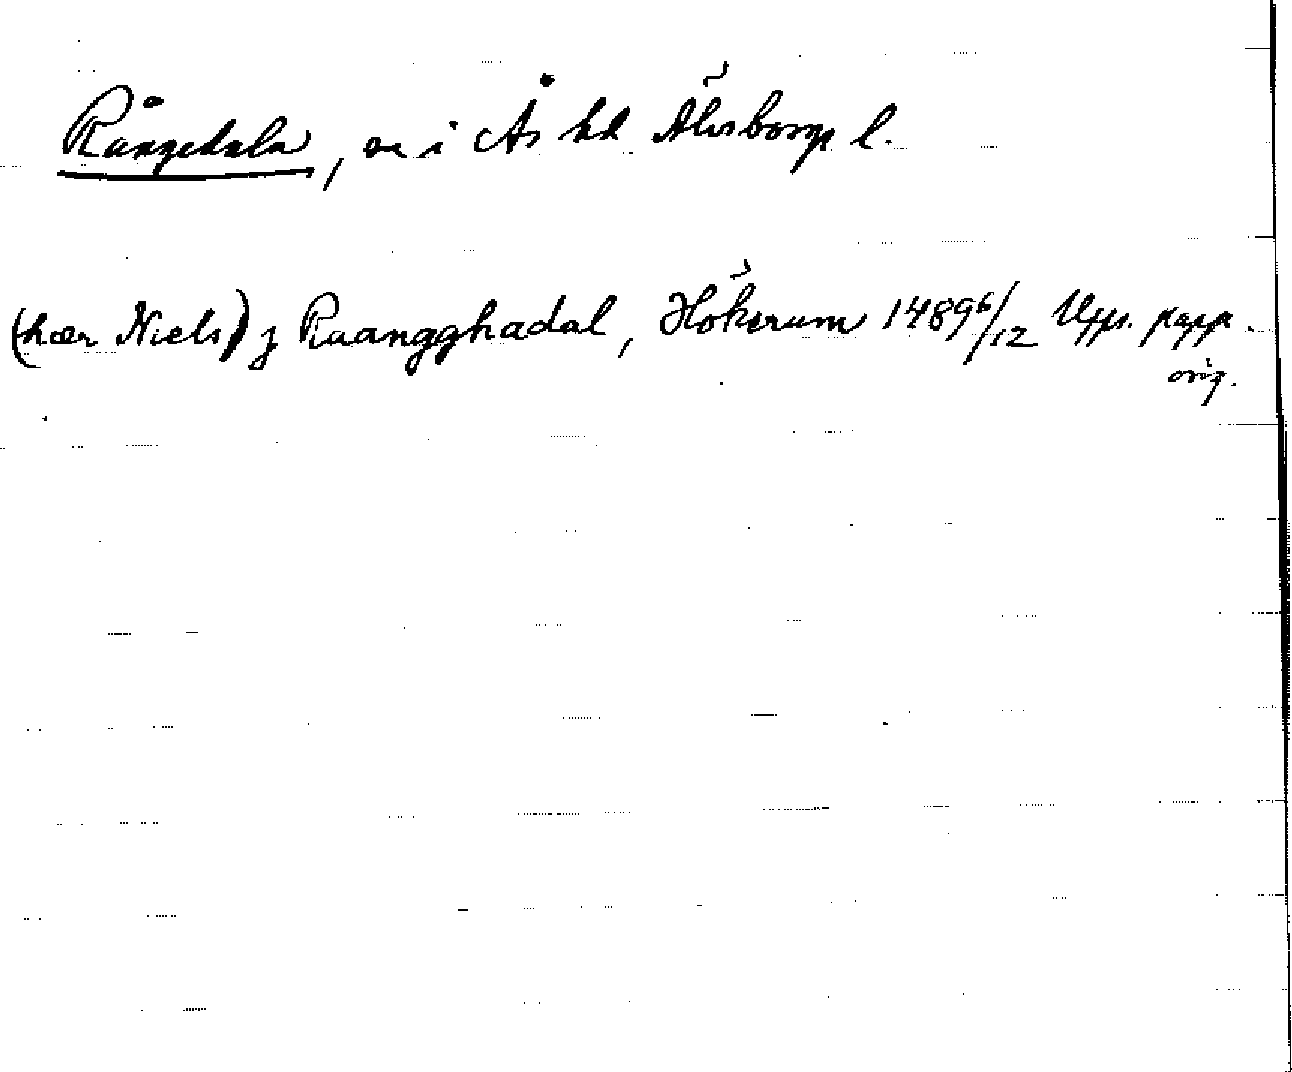 Rångedala, sn i Ås hd Älvsborgs l.
(hær Niels) j Raangghadal, Hökerum 1489 6/12 Upps. papp.
orig.